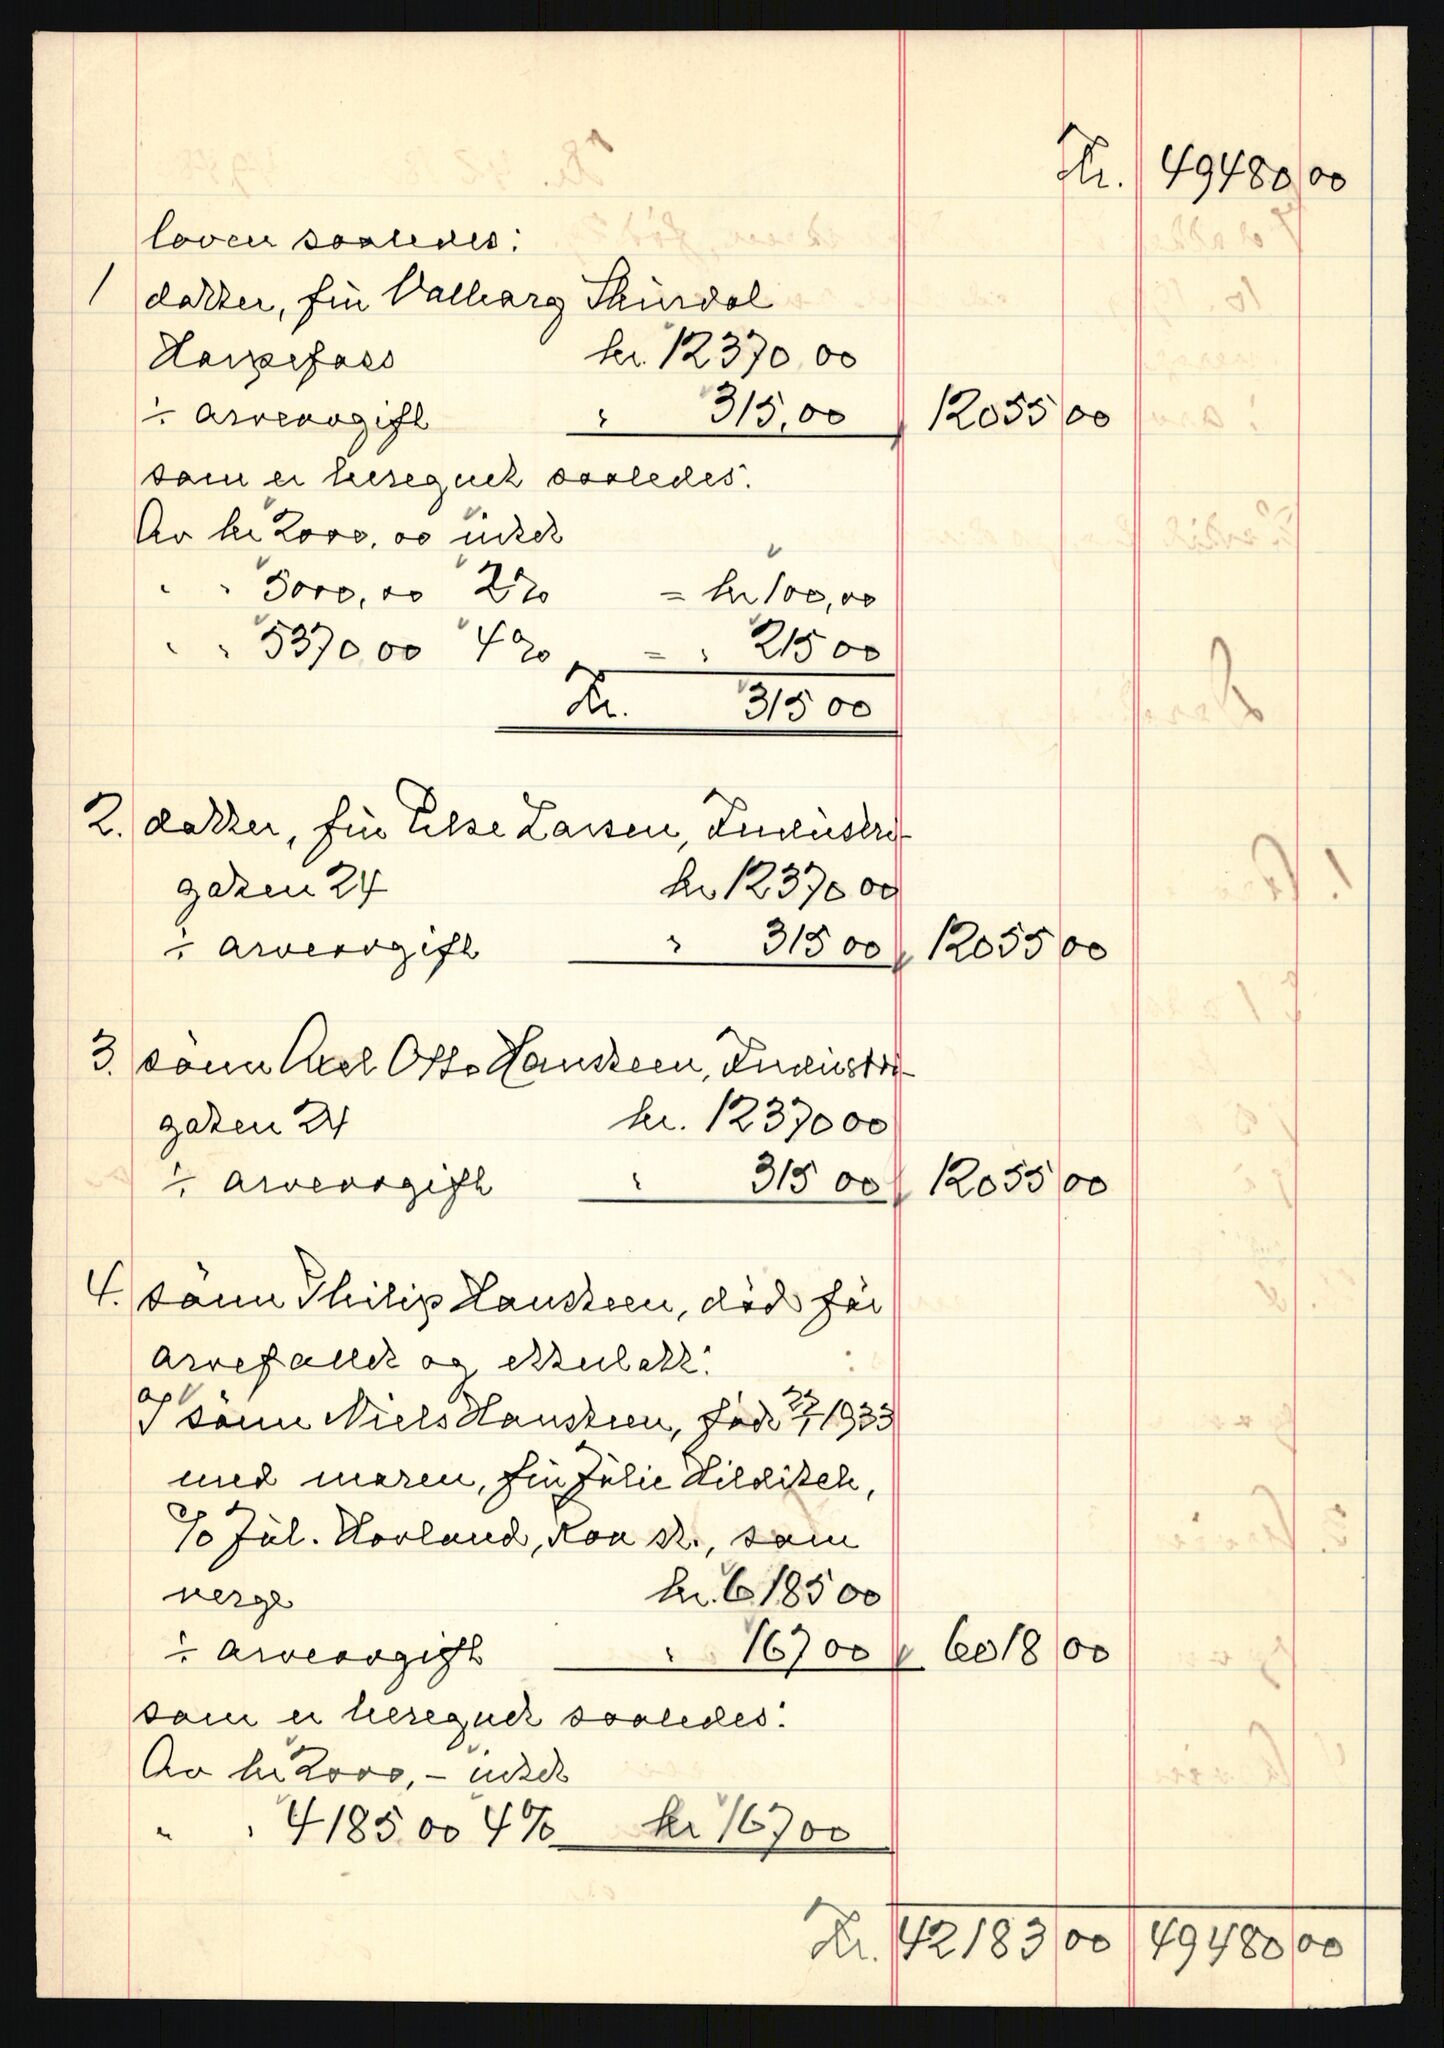 Kr. 49480 00
loven saaledes:
1 datter, fru Valborg Skindal
Harpefoss kr. 12370,00
÷ arveavgift " 315,00 12055 00
som er beregnet saaledes:
Av kr 2000,00 intet
" " 5000,00 2% = kr 100,00
" " 5370 00 4% = " 215 00
Kr. 315 00
2. datter, fru Else Larsen, Industri-
gaten 24 kr 12370 00
÷ arveavgift " 315 00 12055 00
3. sönn Axel Otto Hansteen, Industri-
gaten 24 kr. 12370 00
÷ arveavgift " 315 00 12055 00
4. sönn Philip Hansteen, död för
arvefallet og etterlatt:
a/ sönn Niels Hansteen, född 1933
med moren, fru Julie Hilditch,
c/o Jul. Hovland, Roa st., som
verge kr. 6185 00
÷ arveavgift " 167 00 6018 00
som er beregnet saaledes:
Av kr 2000,- intet
" " 4185 00 4% kr 167 00
Kr. 42183 00 49480 00